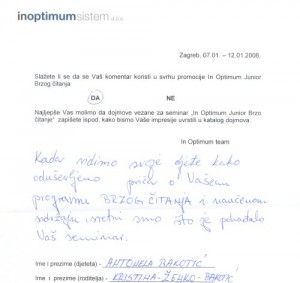 inoptimumsistem d.o.o.
Zagreb, 07.01. – 12.01.2008.
Slažete li se da se Vaš komentar koristi u svrhu promocije In Optimum Junior
Brzog čitanja
DA NE
Najljepše Vas molimo da dojmove vezane za seminar „In Optimum Junior Brzo
čitanje" zapišete ispod, kako bismo Vaše impresije uvrstili u katalog dojmova.
In Optimum team
Kada vidimo svoje djete kako
oduševljeno priča o Vašem
programu BRZOG ČITANJA i naučenom
sadržaju sretni smo što je pohađalo
Vaš seminar.
Ime i prezime (djeteta) - ANTONELA BAROTIĆ
Ime i prezime (roditelja) - KRISTINA - ŽELJKO - BAROTIĆ